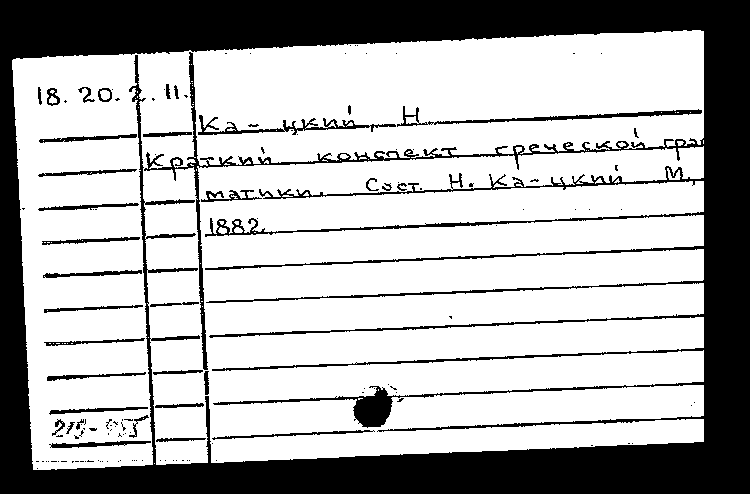 18. 20. 2. 11.
Ка-цкий, Н
Краткий конспект греческой грам
матики. Сост. Н. Ка-цкий М.,
1882.